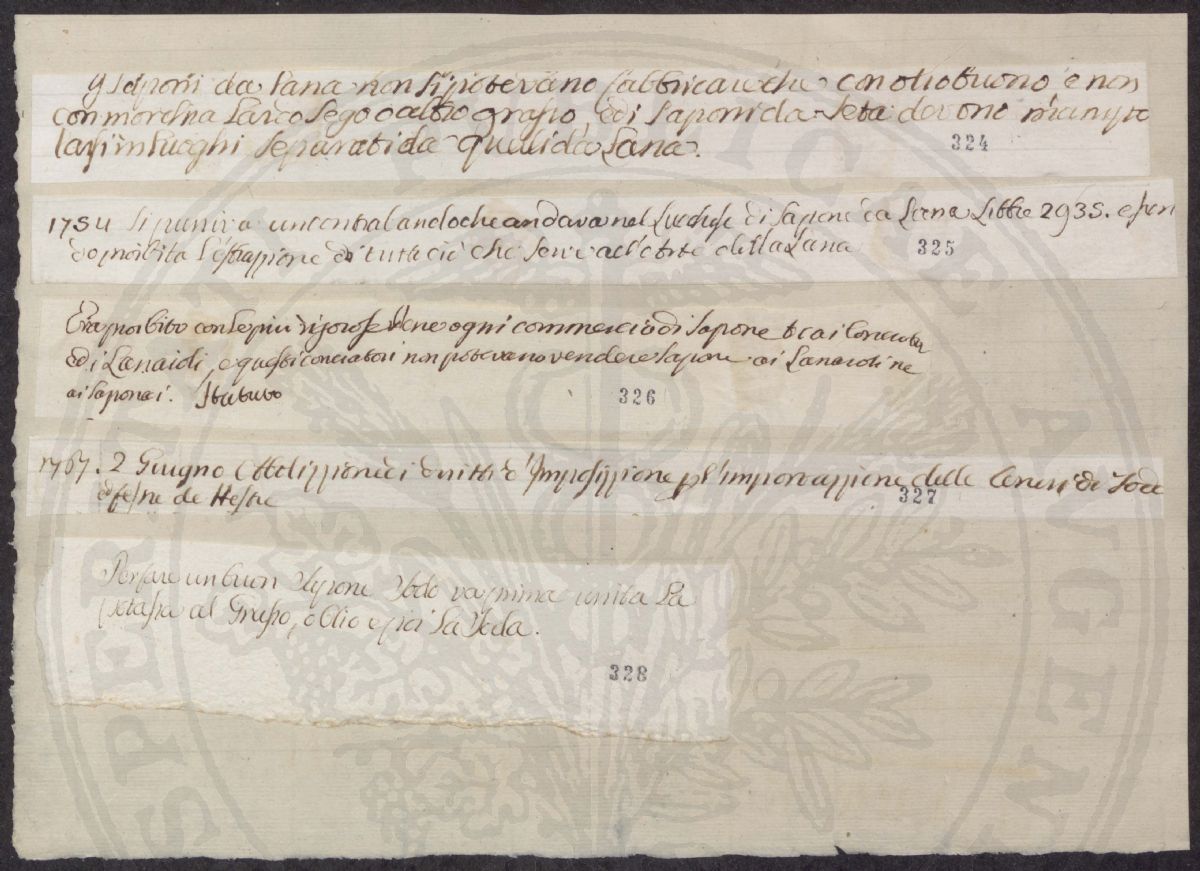 I saponi da Lana non si potevano fabbricare che con olio buono e non
con morchia Lardo Sego o altro grasso, ed i Saponi da Seta devono
in Luoghi separati da quelli da Lana.
324
1754 si puniva un contrabando che andava nel Lucchese di Sapone da Lana Libbre 2935. e
proibita l'estrazzione di tutto ciò che serve all'Arte della Lana
325
Era proibito con le più rigorose Pene ogni commercio di Sapone tra i Conciatori
ed i Lanaioli, e questi conciatori non potevano vendere Sapone ai Lanaioli ne
ai Saponai. Statuto
326
1767. 2 Giugno Abolizzione di diritti d'Imposizzione p l'importazzione delle Ceneri di Soda
327
Per fare un buon Sapone Sodo va prima unita La
potassa al Grasso, o Olio e poi La Soda.
328
SPERNIT PERICULA VANGENT